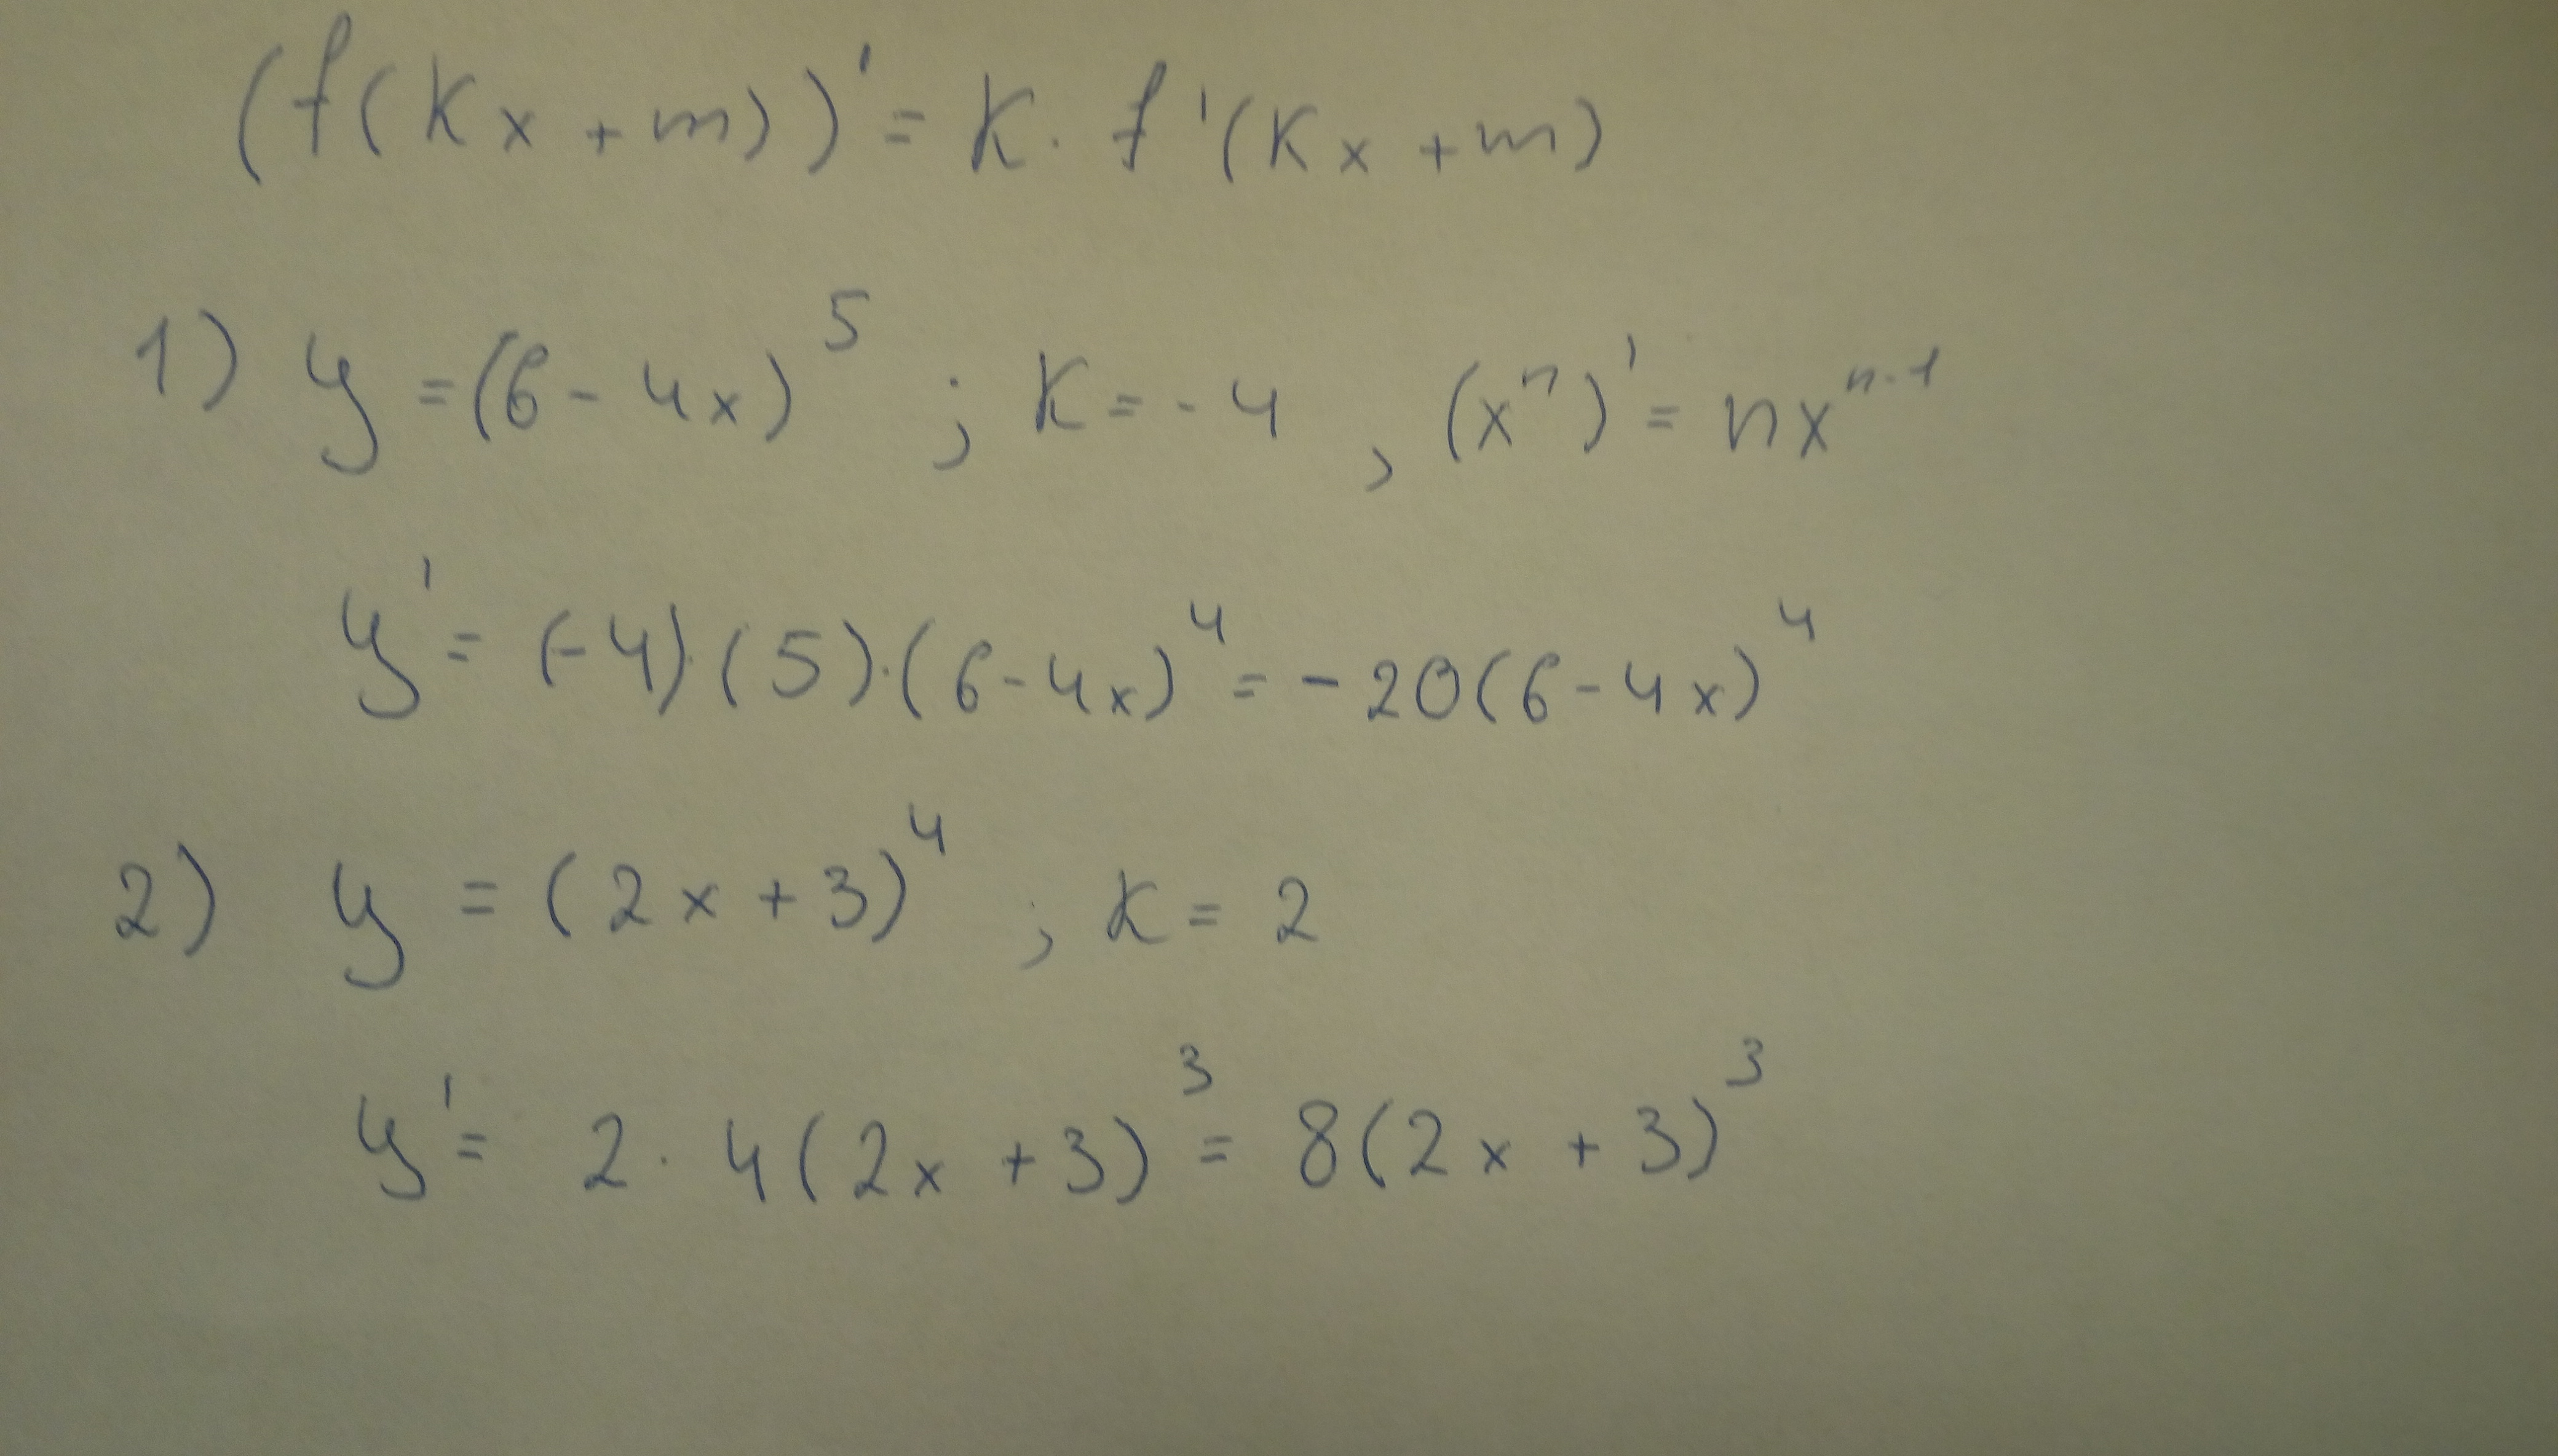 (f(Kx+m))' = K · f'(Kx+m)
1) y = (6 - 4x)^5 ; K = -4 , (x^n)' = nx^{n-1}
y' = (-4)·(5)·(6-4x)^4 = -20(6-4x)^4
2) y = (2x+3)^4 ; K = 2
y' = 2 · 4(2x+3)^3 = 8(2x+3)^3